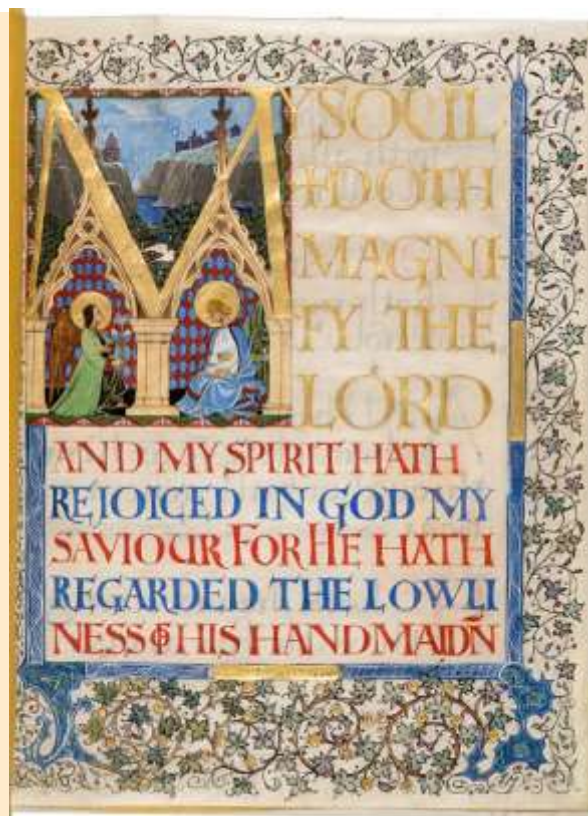 MY SOUL
DOTH
MAGNI-
FY THE
LORD
AND MY SPIRIT HATH
REJOICED IN GOD MY
SAVIOUR FOR HE HATH
REGARDED THE LOWLI
NESS OF HIS HANDMAIDÑ